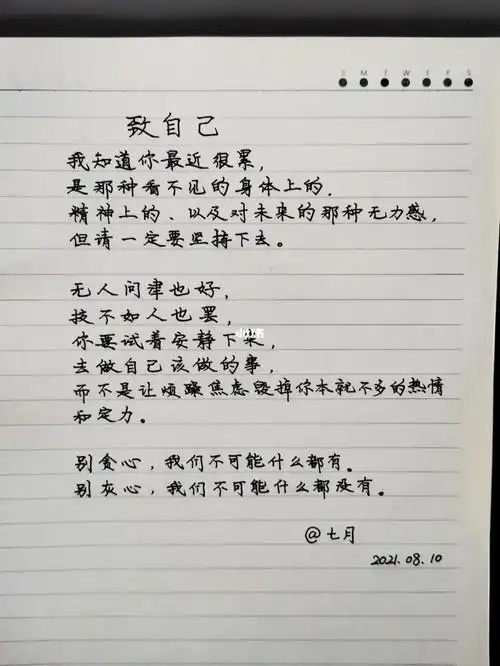 S M T W T F S
致自己
我知道你最近很累,
是那种看不见的身体上的.
精神上的、以及对未来的那种无力感,
但请一定要坚持下去。
无人问津也好,
技不如人也罢,
你要试着安静下来,
去做自己该做的事,
而不是让烦躁焦虑毁掉你本就不多的热情
和定力。
别贪心,我们不可能什么都有。
别灰心,我们不可能什么都没有。
@七月
2021.08.10